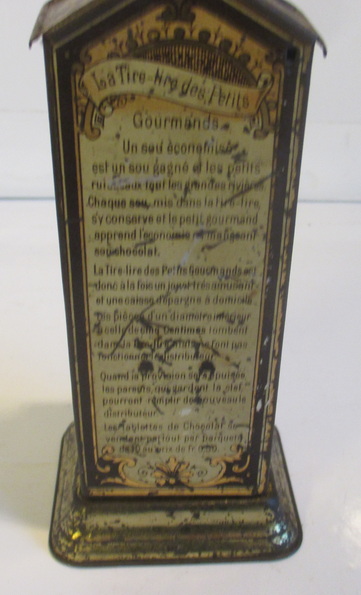 La Tire-lire des Petits
Gourmands
Un sou économisé
est un sou gagné et les petits
font les grandes rivières
Chaque sou, mis dans la tire-lire,
s'y conserve et le petit gourmand
apprend l'économie en mangeant
son chocolat.
La Tire-lire des Petits Gourmands est
donc à la fois un jouet très amusant
et une caisse d'épargne à domicile.
d'un diamètre
celle de cinq Centimes tombent
dans la pas
fonctionner le distributeur.
Quand la provision est épuisée,
les parents, qui gardent la clef,
pourront remplir de nouveau le
distributeur.
Les tablettes de Chocolat se
vendent partout par paquets
de au prix de fr